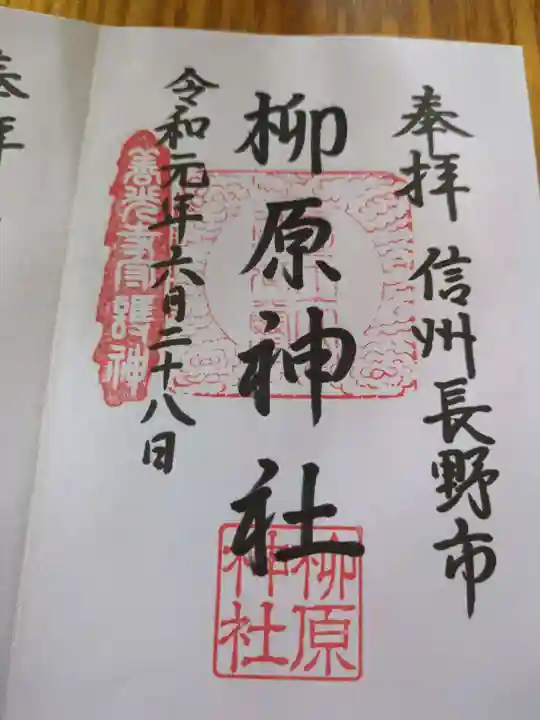 奉拝 信州長野市
柳原神社
柳原
神社
令和元年六月二十八日
善光寺守護神
奉拝